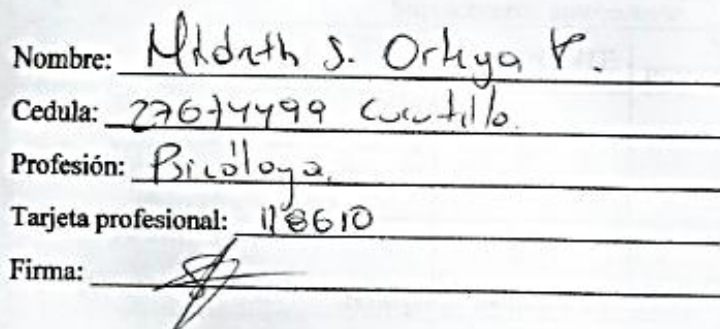 Nombre: Mildreth S. Ortega P.
Cedula: 27674499 Cucutilla.
Profesión: Psicóloga.
Tarjeta profesional: 118610
Firma: